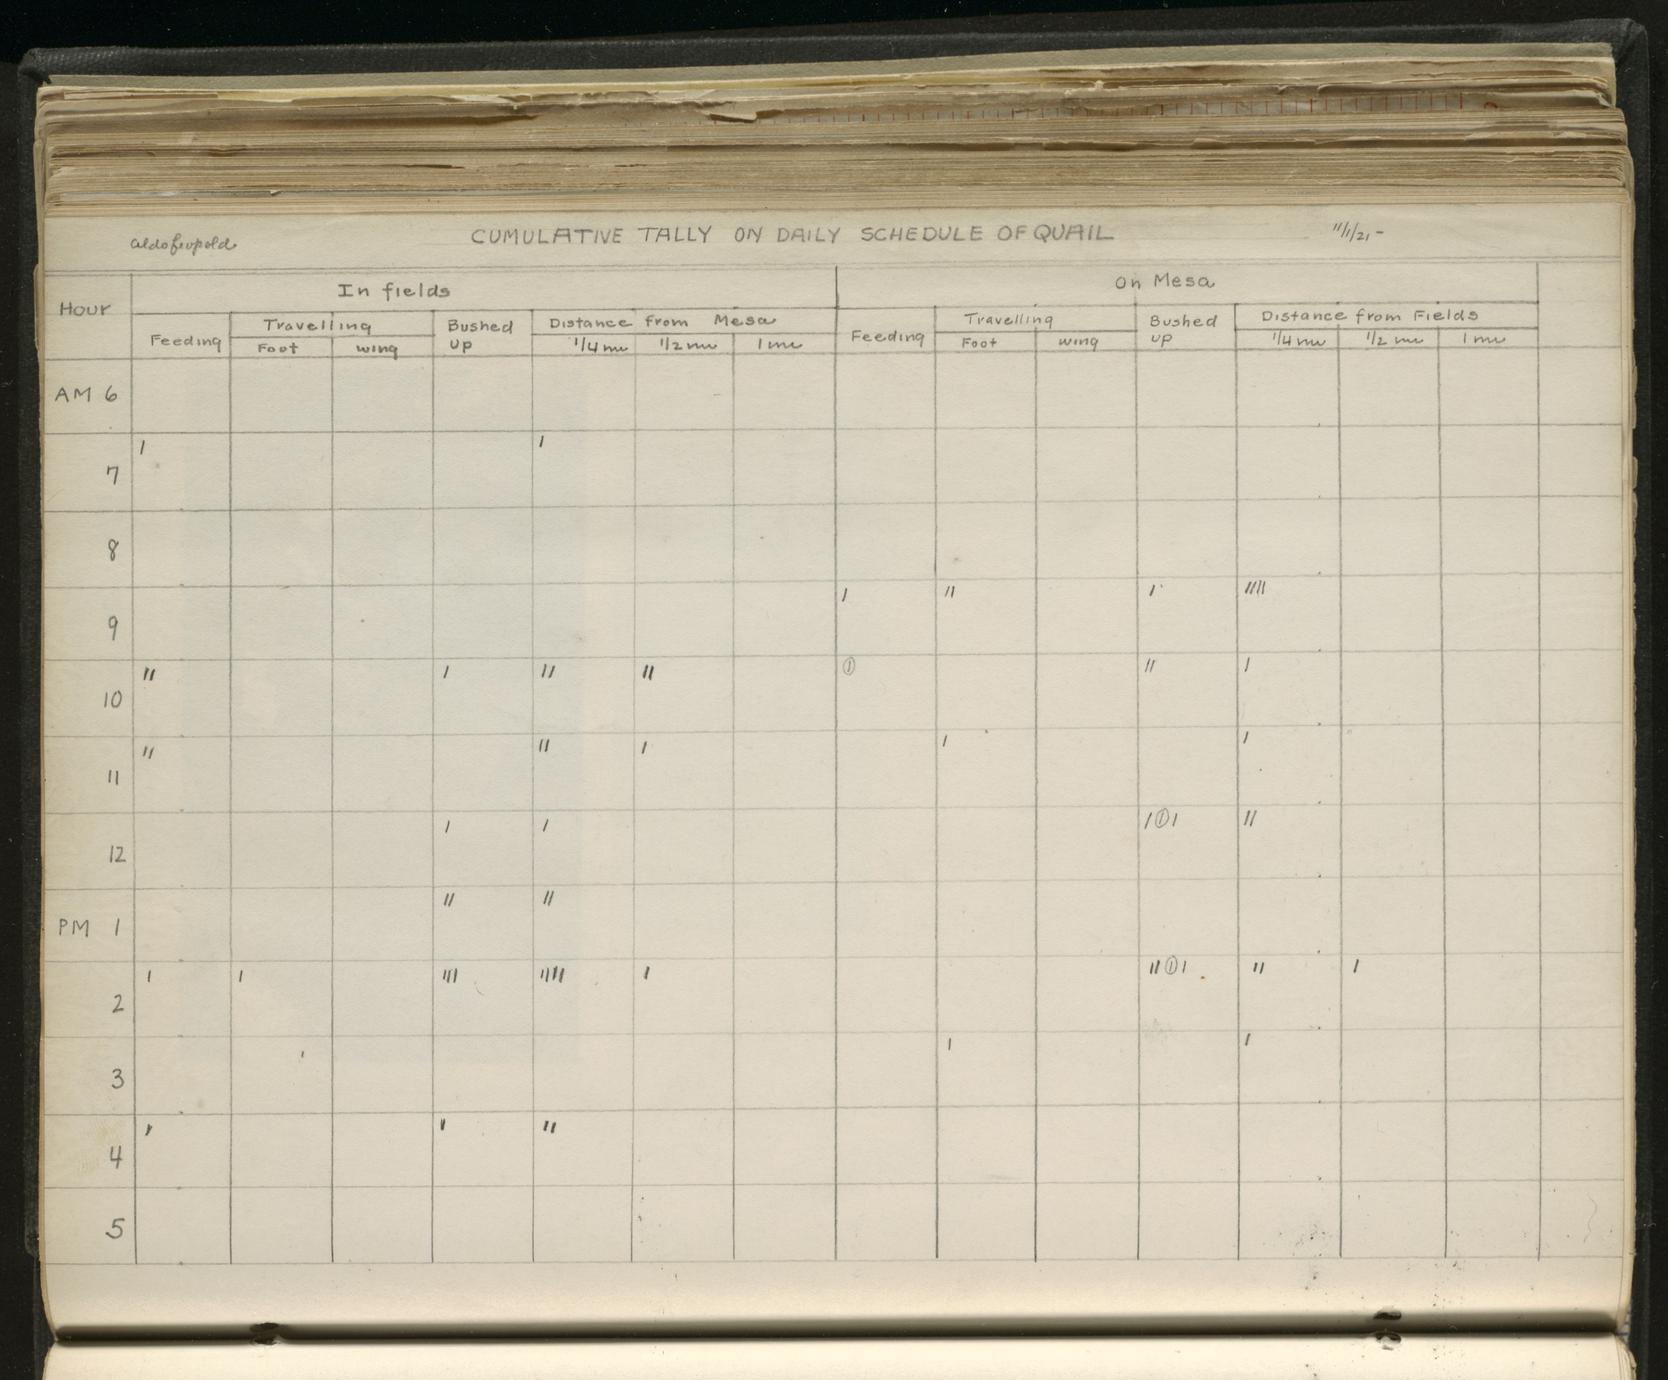 Aldo Leopold CUMULATIVE TALLY ON DAILY SCHEDULE OF QUAIL 11/1/21-
Hour In fields On Mesa
Feeding Travelling Bushed up Distance from Mesa Feeding Travelling Bushed up Distance from Fields
Foot wing 1/4 mi 1/2 mi 1 mi Foot wing 1/4 mi 1/2 mi 1 mi
AM 6
7 I I
8
9 I II I IIII
10 II I II II (I) II I
11 II II I I I
12 I I I(I)I II
PM 1 II II
2 I I III IIIII I II(I)I II I
3 I I
4 I I II
5